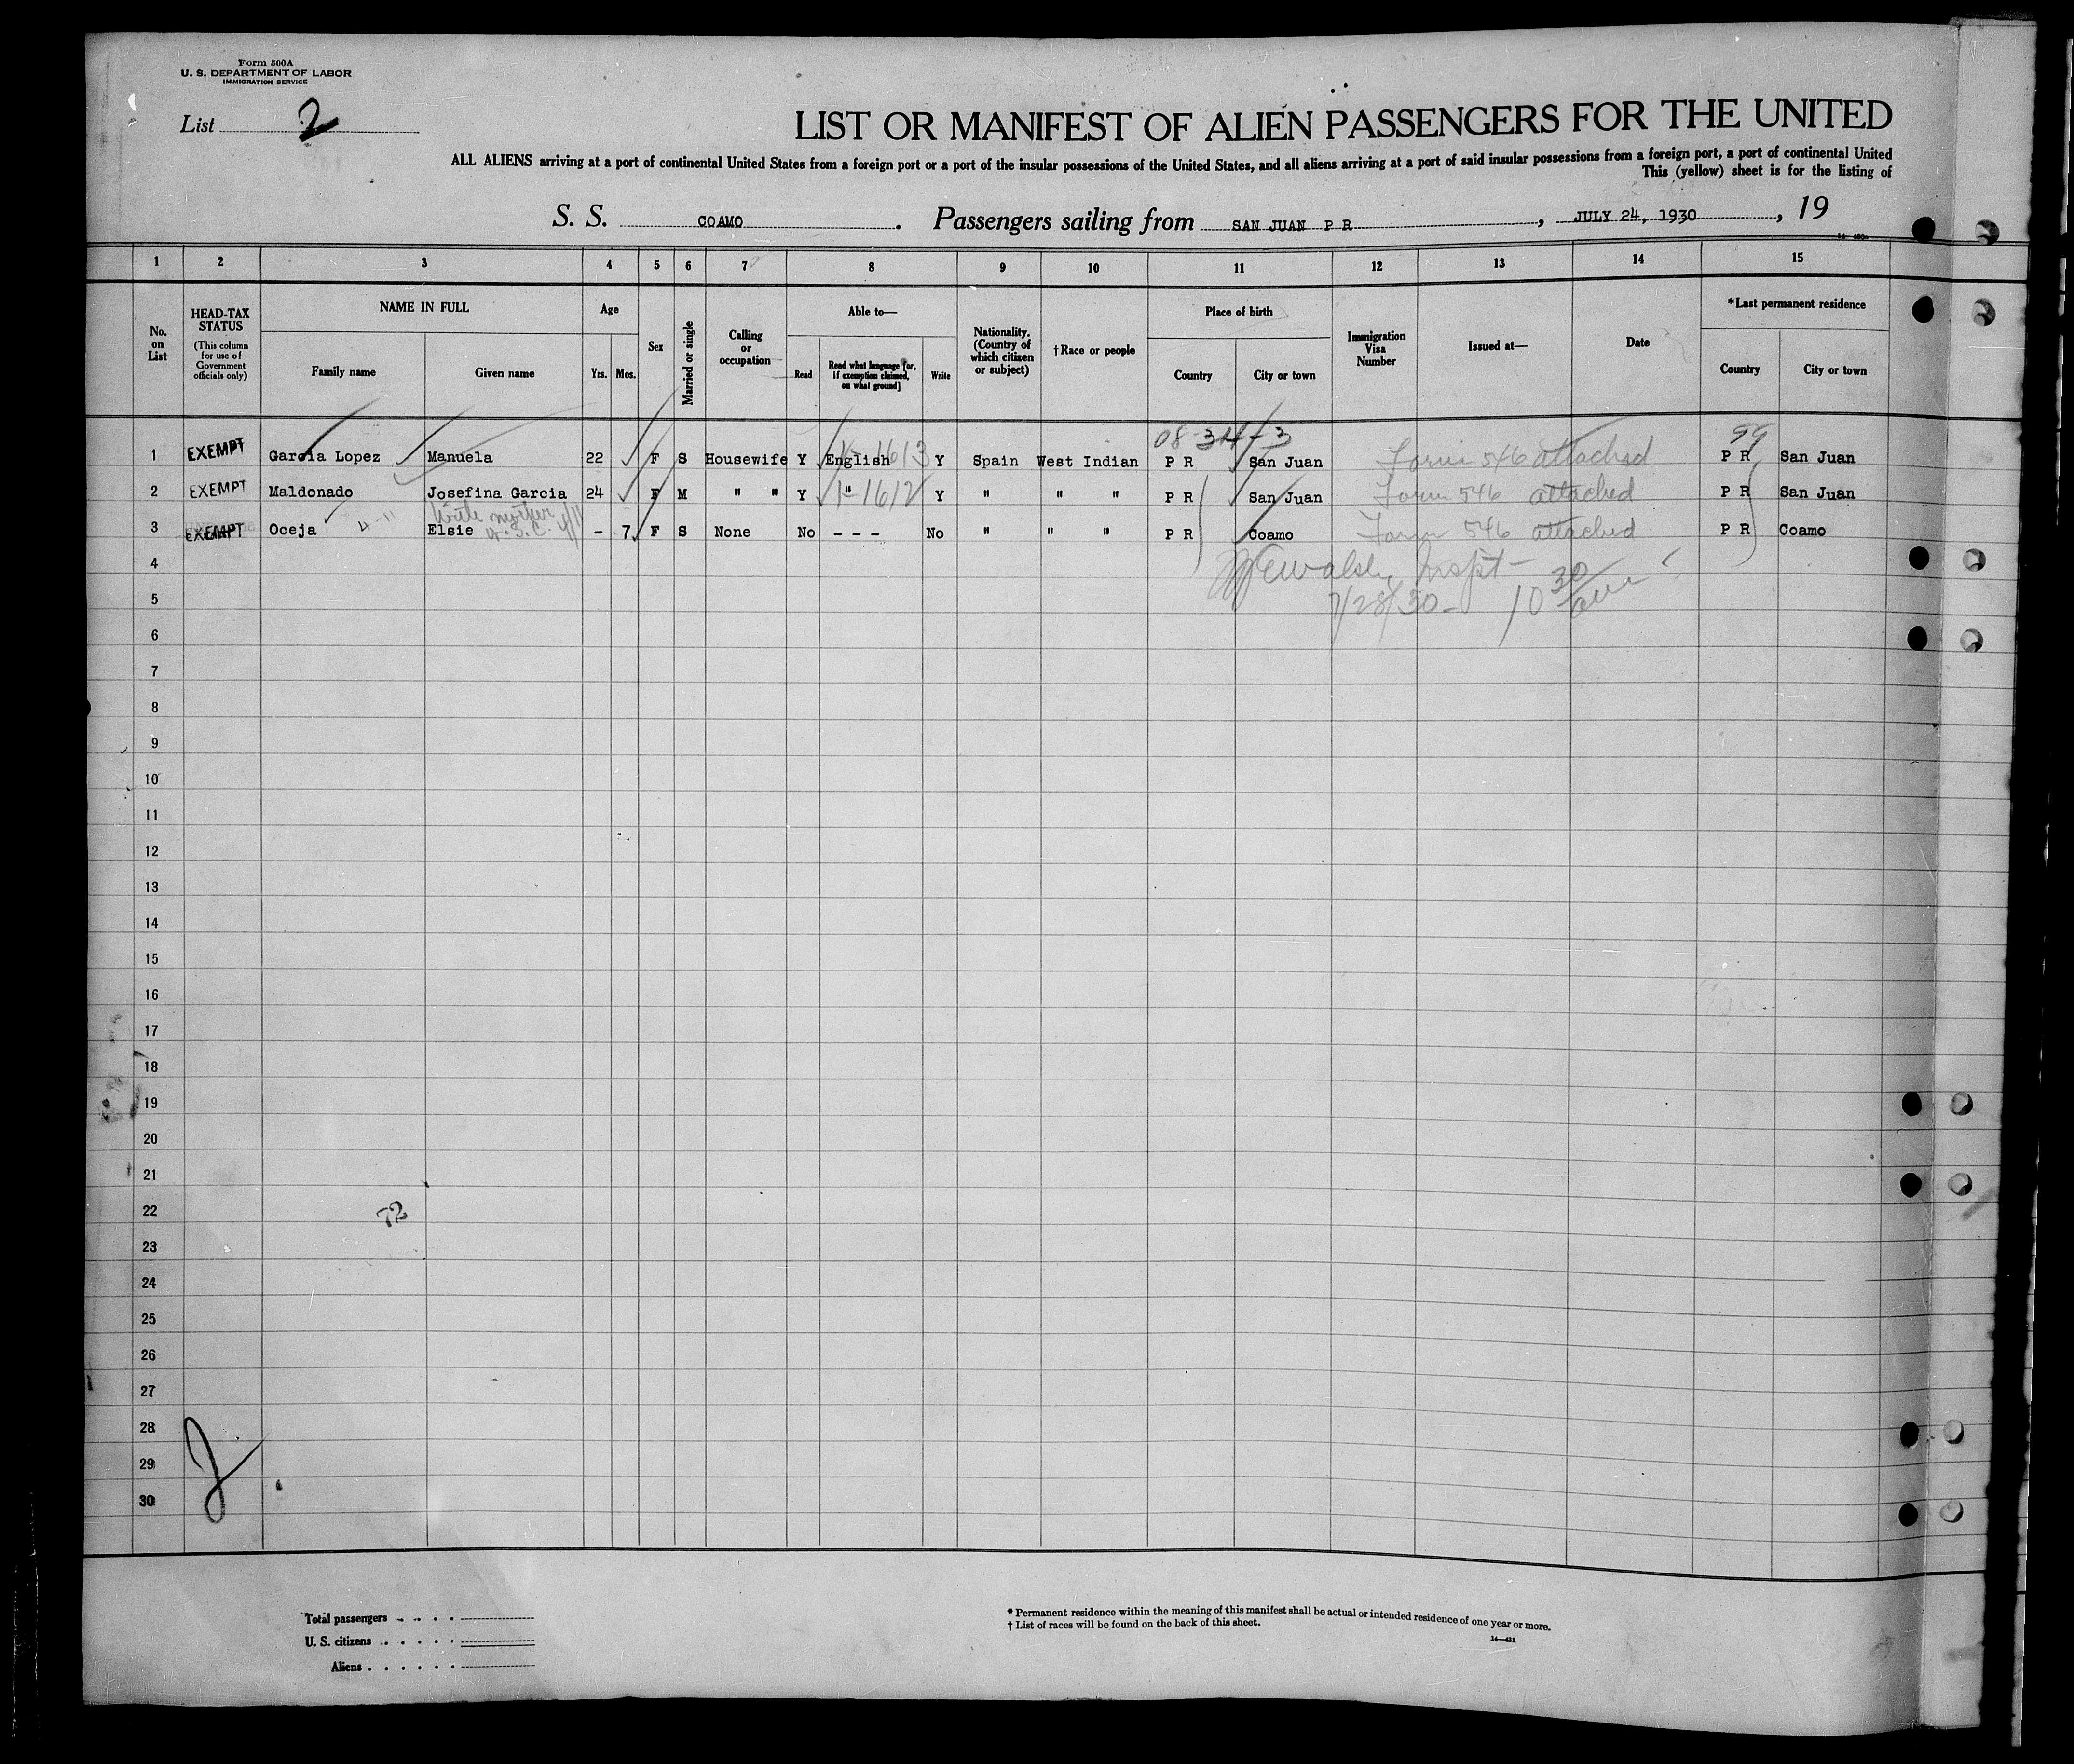 Form 500A
U. S. DEPARTMENT OF LABOR
IMMIGRATION SERVICE
List 2
LIST OR MANIFEST OF ALIEN PASSENGERS FOR THE UNITED
ALL ALIENS arriving at a port of continental United States from a foreign port or a port of the insular possessions of the United States, and all aliens arriving at a port of said insular possessions from a foreign port, a port of continental United
This (yellow) sheet is for the listing of
S. S. COAMO. Passengers sailing from SAN JUAN P R, JULY 24, 1930, 19
1 2 3 4 5 6 7 8 9 10 11 12 13 14 15
No. on List
HEAD-TAX STATUS
(This column for use of Government officials only)
NAME IN FULL
Family name
Given name
Age
Yrs. Mos.
Sex
Married or single
Calling or occupation
Able to—
Read
Read what language [or, if exemption claimed, on what ground]
Write
Nationality. (Country of which citizen or subject)
†Race or people
Place of birth
Country
City or town
Immigration Visa Number
Issued at—
Date
*Last permanent residence
Country
City or town
08-344-3 99
1 EXEMPT Garcia Lopez Manuela 22 F S Housewife Y English 1613 Y Spain West Indian P R San Juan Form 546 attached P R San Juan
2 EXEMPT Maldonado Josefina Garcia 24 F M " " Y " 1-1612 Y " " " P R San Juan Form 546 attached P R San Juan
3 EXEMPT Oceja Elsie - 7 F S None No --- No " " " P R Coamo Form 546 attached P R Coamo
4 Inspt-
5 7/28/30- 10 30
6
7
8
9
10
11
12
13
14
15
16
17
18
19
20
21
22 72
23
24
25
26
27
28
29
30
Total passengers
U. S. citizens
Aliens
* Permanent residence within the meaning of this manifest shall be actual or intended residence of one year or more.
† List of races will be found on the back of this sheet.